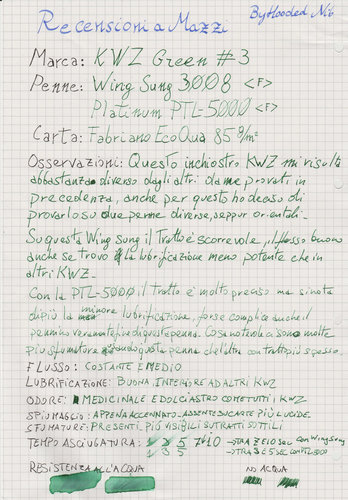 Recensioni a Mazzi
By Hooded Nib
Marca: KWZ Green #3
Penne: Wing Sung 3008 <F>
Platinum PTL-5000 <F>
Carta: Fabriano EcoQua 85 g/m²
Osservazioni: Questo inchiostro KWZ mi risulta
abbastanza diverso dagli altri da me provati in
precedenza, anche per questo ho deciso di
provarlo su due penne diverse, seppur orientali.
Su questa Wing Sung il tratto è scorrevole, il flusso buono
anche se trovo la lubrificazione meno potente che in
altri KWZ.
Con la PTL-5000 il tratto è molto preciso ma si nota
di più la minore lubrificazione, forse complice anche il
pennino veramente fine di questa penna. Cosa notevole ci sono molte
più sfumature usando questa penna che l'altra con tratto più spesso.
FLUSSO: COSTANTE E MEDIO
LUBRIFICAZIONE: BUONA, INFERIORE AD ALTRI KWZ
ODORE: MEDICINALE E DOLCIASTRO COME TUTTI I KWZ
SPIUMAGGIO: APPENA ACCENNATO - ASSENTE SU CARTE PIÙ LUCIDE.
SFUMATURE: PRESENTI, PIÙ VISIBILI SU TRATTI SOTTILI
TEMPO ASCIUGATURA: 1 2 5 7 10 → TRA 7 E 10 SEC CON Wing Sung
1 3 5 → TRA 3 E 5 SEC CON PTL 5000
RESISTENZA ALL'ACQUA NO ACQUA